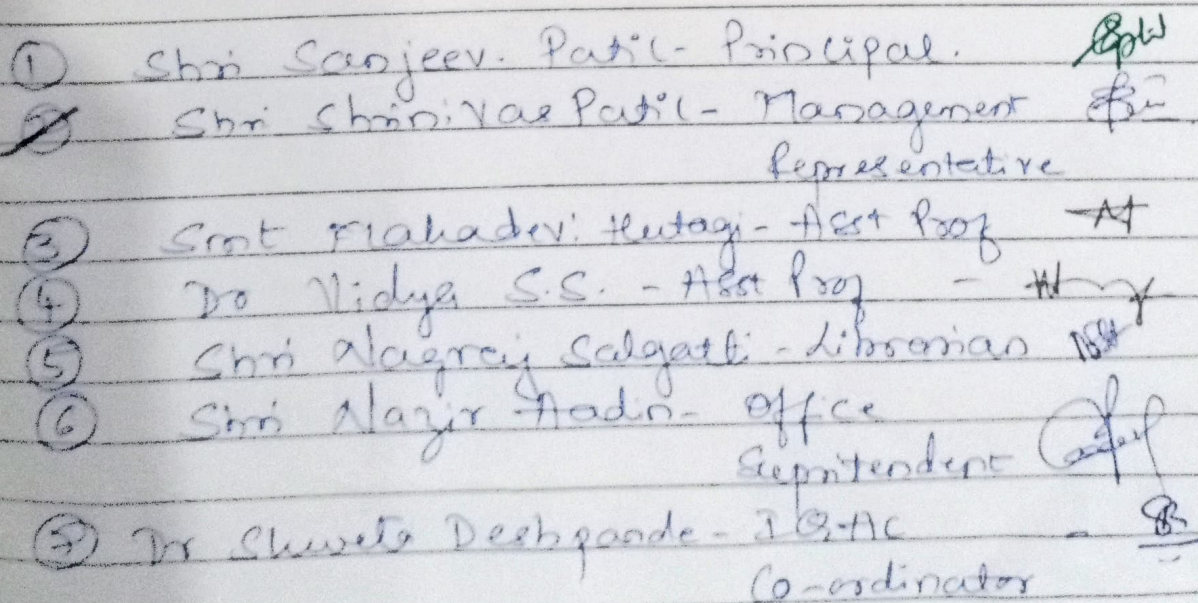 ① Shri Sanjeev. Patil - Principal.
② Shri Shrinivas Patil - Management
Representative
③ Smt Mahadevi Hutagi - Asst Prof
④ Dr Vidya S.S. - Asst Prof -
⑤ Shri Nagraj Salgatti - Librarian
⑥ Shri Nazir Aadin - Office
Supritendent
⑦ Dr Shweta Deshpande - IQAC -
Co-ordinator